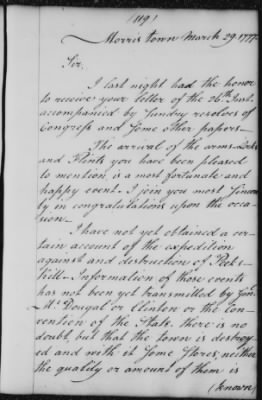 (119)
Morris town March 29. 1777.
Sir,
I last night had the honor
to receive your letter of the 26th Inst.
accompanied by Sundry resolves of
Congress and some other papers.
The arrival of the arms Locks
and Flints you have been pleased
to mention, is a most fortunate and
happy event. I join you most sincere
ly in congratulations upon the occa
sion.
I have not yet obtained a cer
tain account of the expedition
against and destruction of Peek s
Kill. Information of those events
has not been yet transmitted by Genl
Mc Dougal or Clinton or the Con
vention of the State. there is no
doubt, but that the town is destroy
ed and with it Some Stores, neither
the quality or amount of them is
(known)